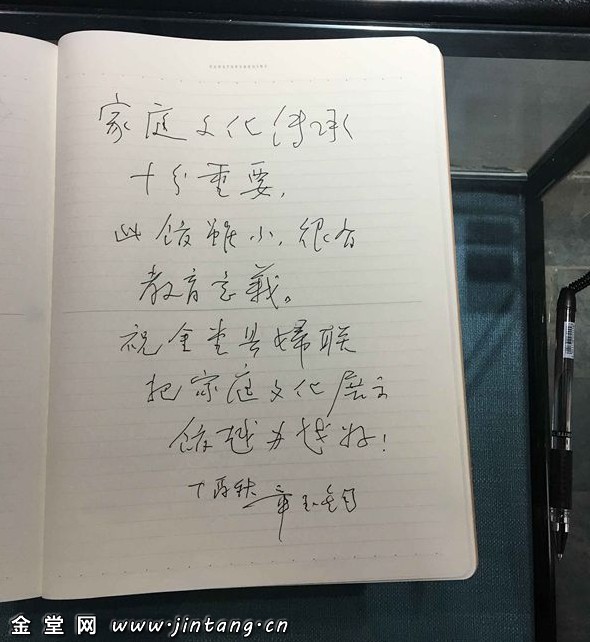 家庭文化传承
十分重要,
此馆虽小,很有
教育意義。
祝金堂县婦联
把家庭文化展示
馆越办越好!
章玉钧
金堂网 www.jintang.cn